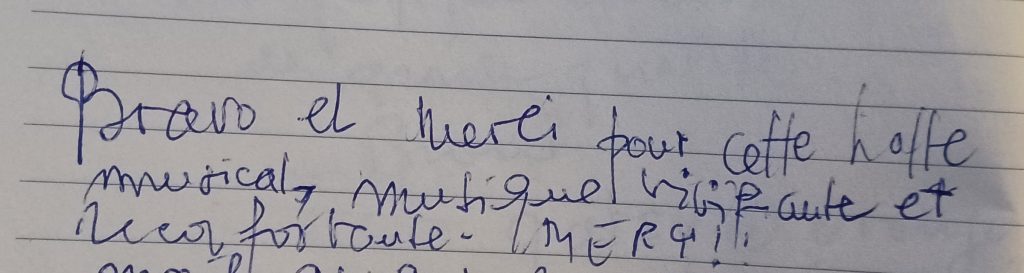 Bravo et merci pour cette halte
musical, musique vivifiante et
réconfortante. MERCI!!